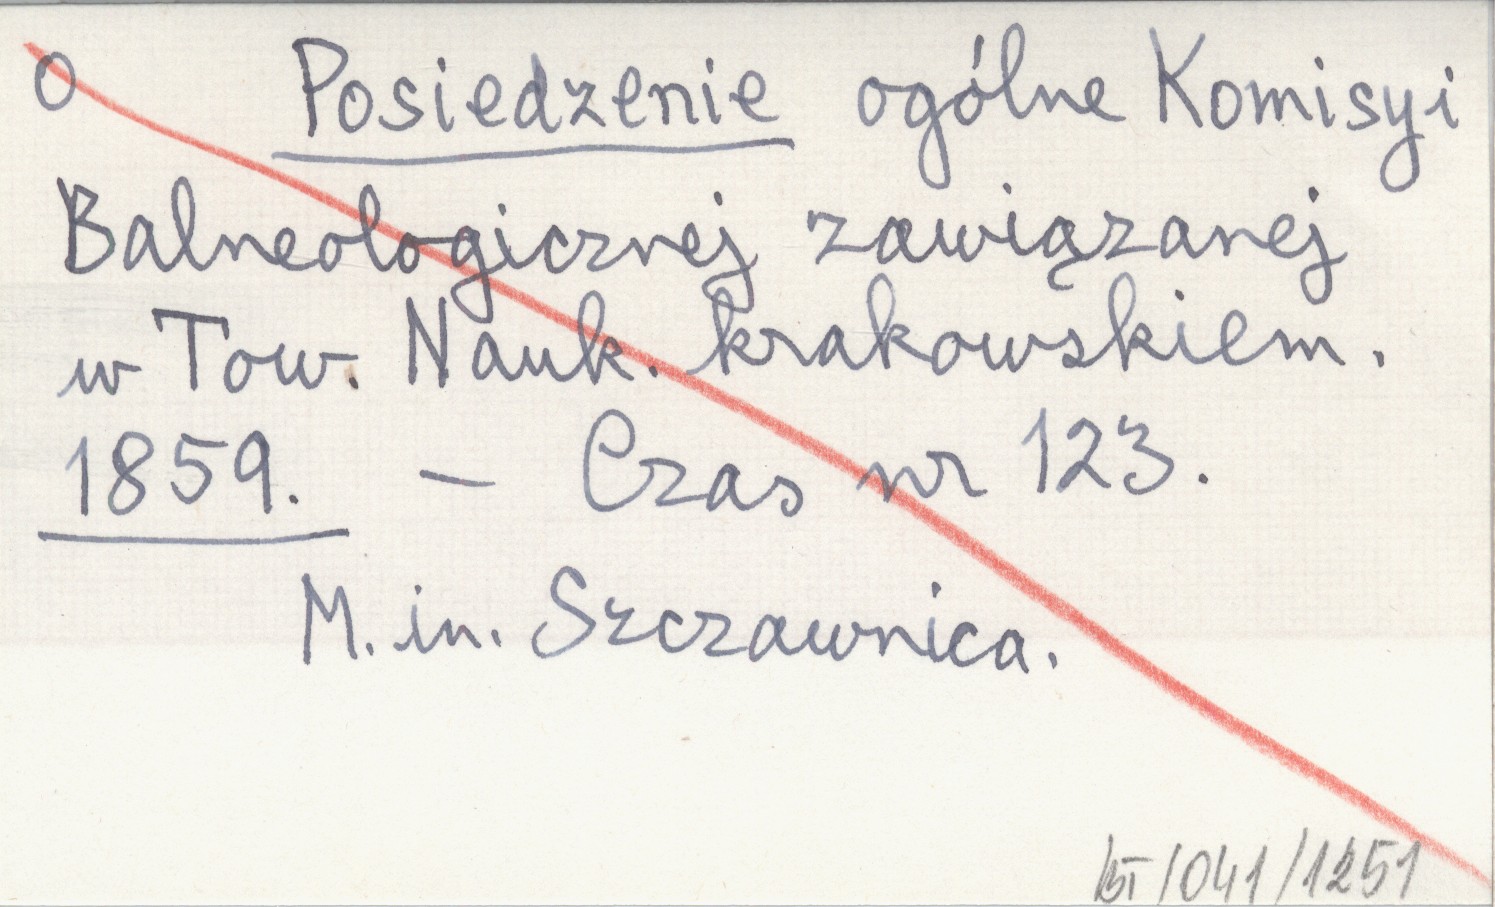 o Posiedzenie ogólne Komisyi
Balneologicznej zawiązanej
w Tow. Nauk. krakowskiem.
1859. – Czas nr 123.
M. in. Szczawnica.
/041/1251